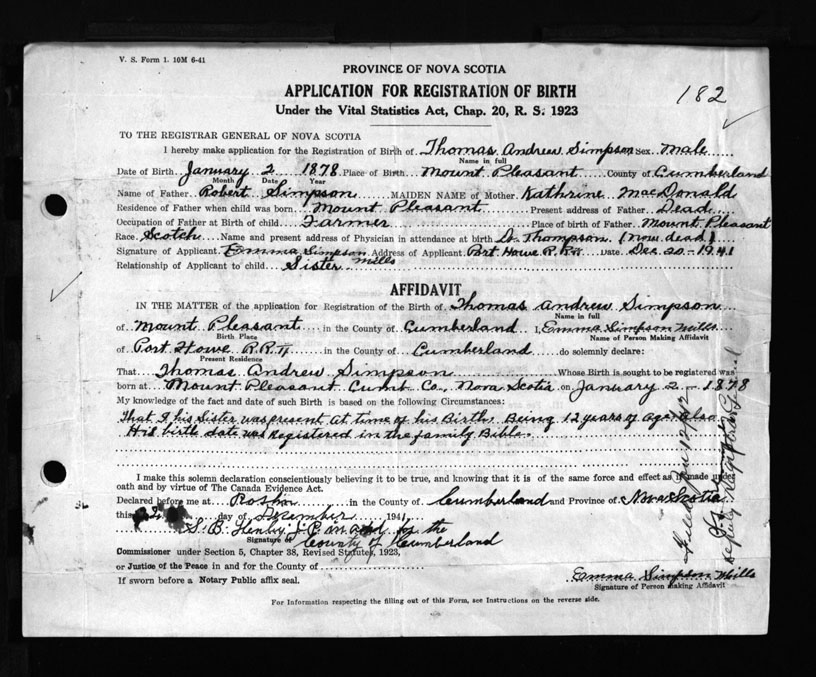 V. S. Form 1. 10M 6-41
PROVINCE OF NOVA SCOTIA
APPLICATION FOR REGISTRATION OF BIRTH
182
Under the Vital Statistics Act, Chap. 20, R. S. 1923
TO THE REGISTRAR GENERAL OF NOVA SCOTIA
I hereby make application for the Registration of Birth of Thomas Andrew Simpson Sex Male
Name in full
Date of Birth January 2 1878 Place of Birth Mount Pleasant County of Cumberland
Month Date Year
Name of Father Robert Simpson MAIDEN NAME of Mother Kathrine MacDonald
Residence of Father when child was born Mount Pleasant Present address of Father Dead
Occupation of Father at Birth of child Farmer Place of birth of Father Mount Pleasant
Race Scotch Name and present address of Physician in attendance at birth D. Thompson (now dead)
Signature of Applicant Emma Simpson Mills Address of Applicant Port Howe R.R. Date Dec 20-1941
Relationship of Applicant to child Sister
AFFIDAVIT
IN THE MATTER of the application for Registration of the Birth of Thomas Andrew Simpson
Name in full
of Mount Pleasant in the County of Cumberland I, Emma Simpson Mills
Birth Place Name of Person Making Affidavit
of Port Howe R.R. in the County of Cumberland do solemnly declare:
Present Residence
That Thomas Andrew Simpson Whose Birth is sought to be registered was
born at Mount Pleasant Cumb Co, Nova Scotia on January 2 - 1878
My knowledge of the fact and date of such Birth is based on the following Circumstances:
That I his Sister was present at time of his Birth. Being 12 years of age also
His birth date was registered in the family Bible.
I make this solemn declaration conscientiously believing it to be true, and knowing that it is of the same force and effect as if made under
oath and by virtue of The Canada Evidence Act.
Declared before me at in the County of Cumberland and Province of Nova Scotia
this day of December 1941
S. B. Henley J.P. in and for the
Signature of County of Cumberland
Commissioner under Section 5, Chapter 38, Revised Statutes, 1923,
or Justice of the Peace in and for the County of
If sworn before a Notary Public affix seal.
Emma Simpson Mills
Signature of Person Making Affidavit
For Information respecting the filling out of this Form, see Instructions on the reverse side.
Filed Jan 12/42
Deputy Registrar General